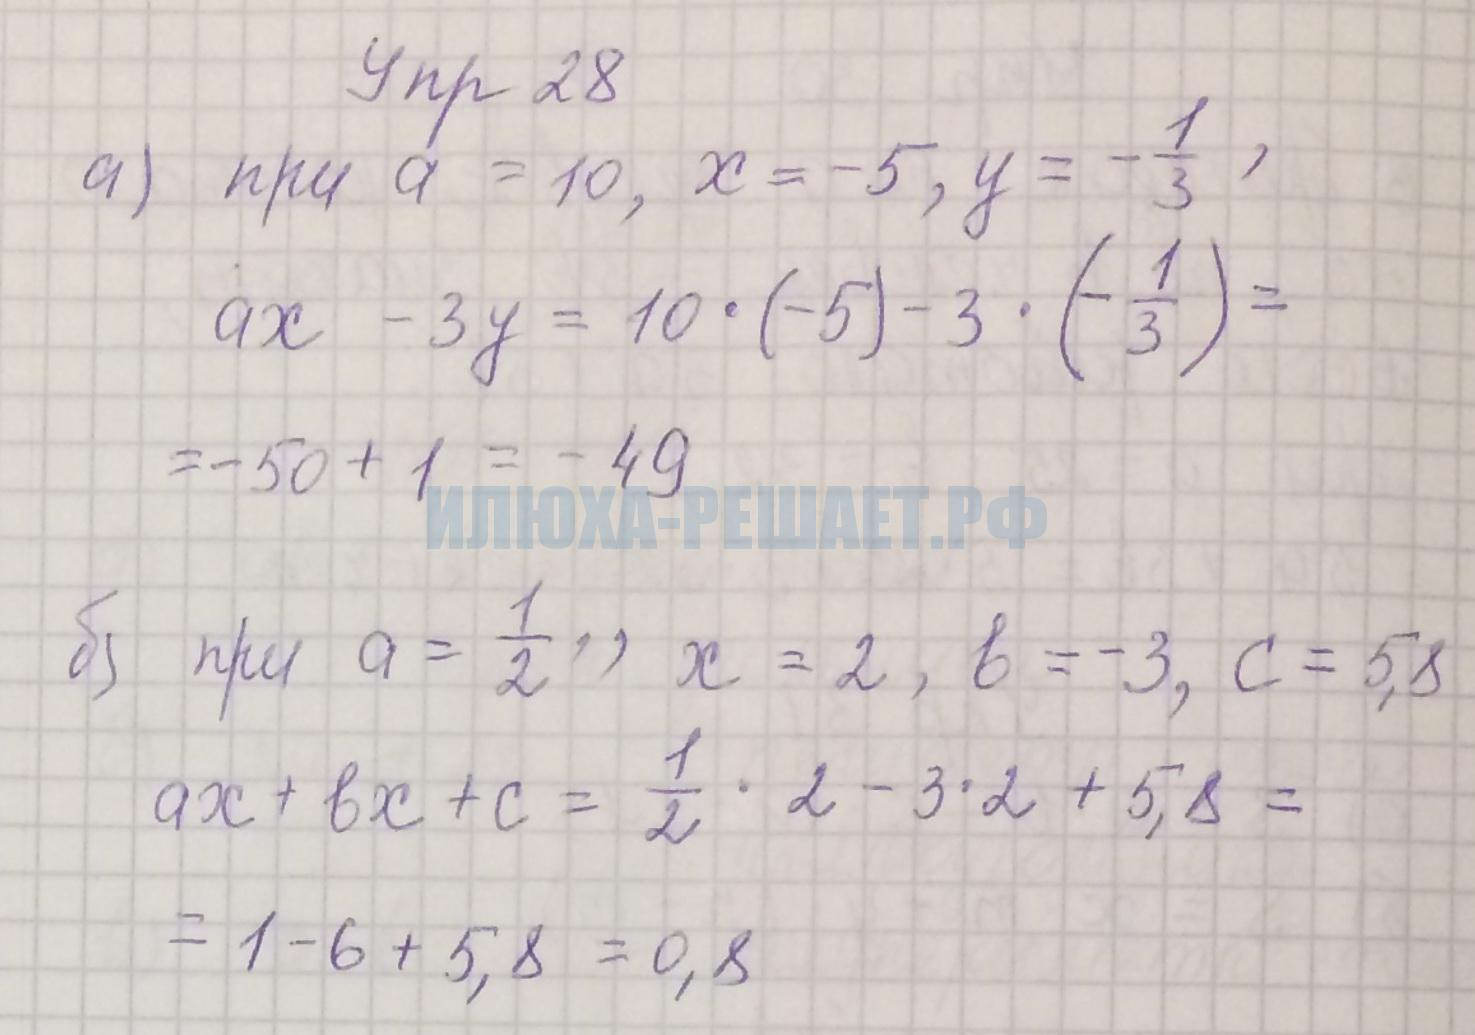 Упр 28
а) при a = 10, x = -5, y = -1/3,
ax - 3y = 10 · (-5) - 3 · (-1/3) =
= -50 + 1 = -49
ИЛЮХА-РЕШАЕТ.РФ
б) при a = 1/2,, x = 2, b = -3, c = 5,8
ax + bx + c = 1/2 · 2 - 3 · 2 + 5,8 =
= 1 - 6 + 5,8 = 0,8